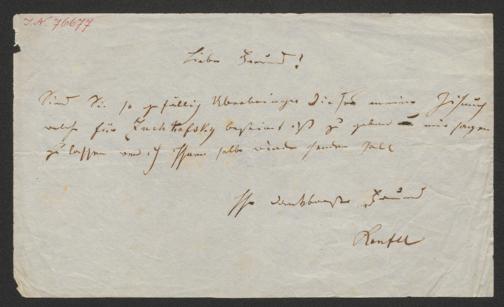 I.N. 76677
Lieber Freund!
Sind Sie so gefällig Überbringer dieses meine Zeichnung
welche für bestimmt ist zu geben mir sagen
zu lassen wen ich selbe wieder senden soll
Ihr dankbarster Freund